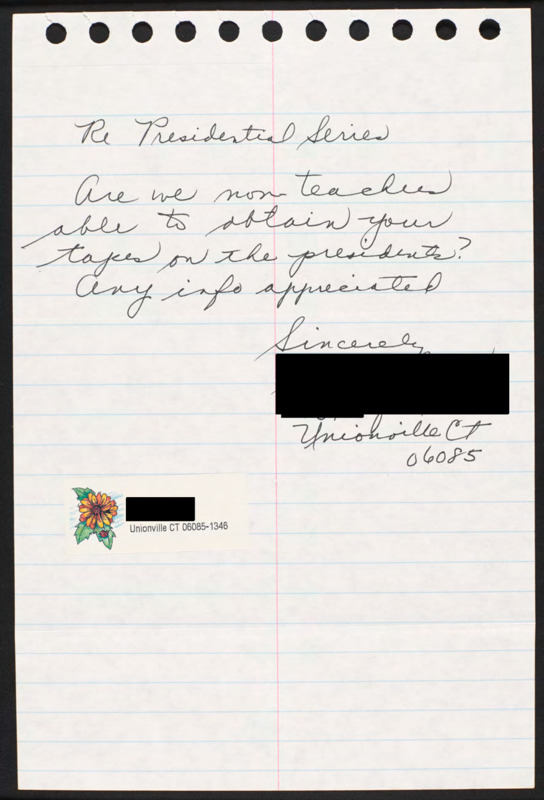 Re Presidential Series
Are we non-teachers
able to obtain your
tapes on the presidents?
Any info appreciated
Sincerely
Unionville Ct
06085
Unionville CT 06085-1346